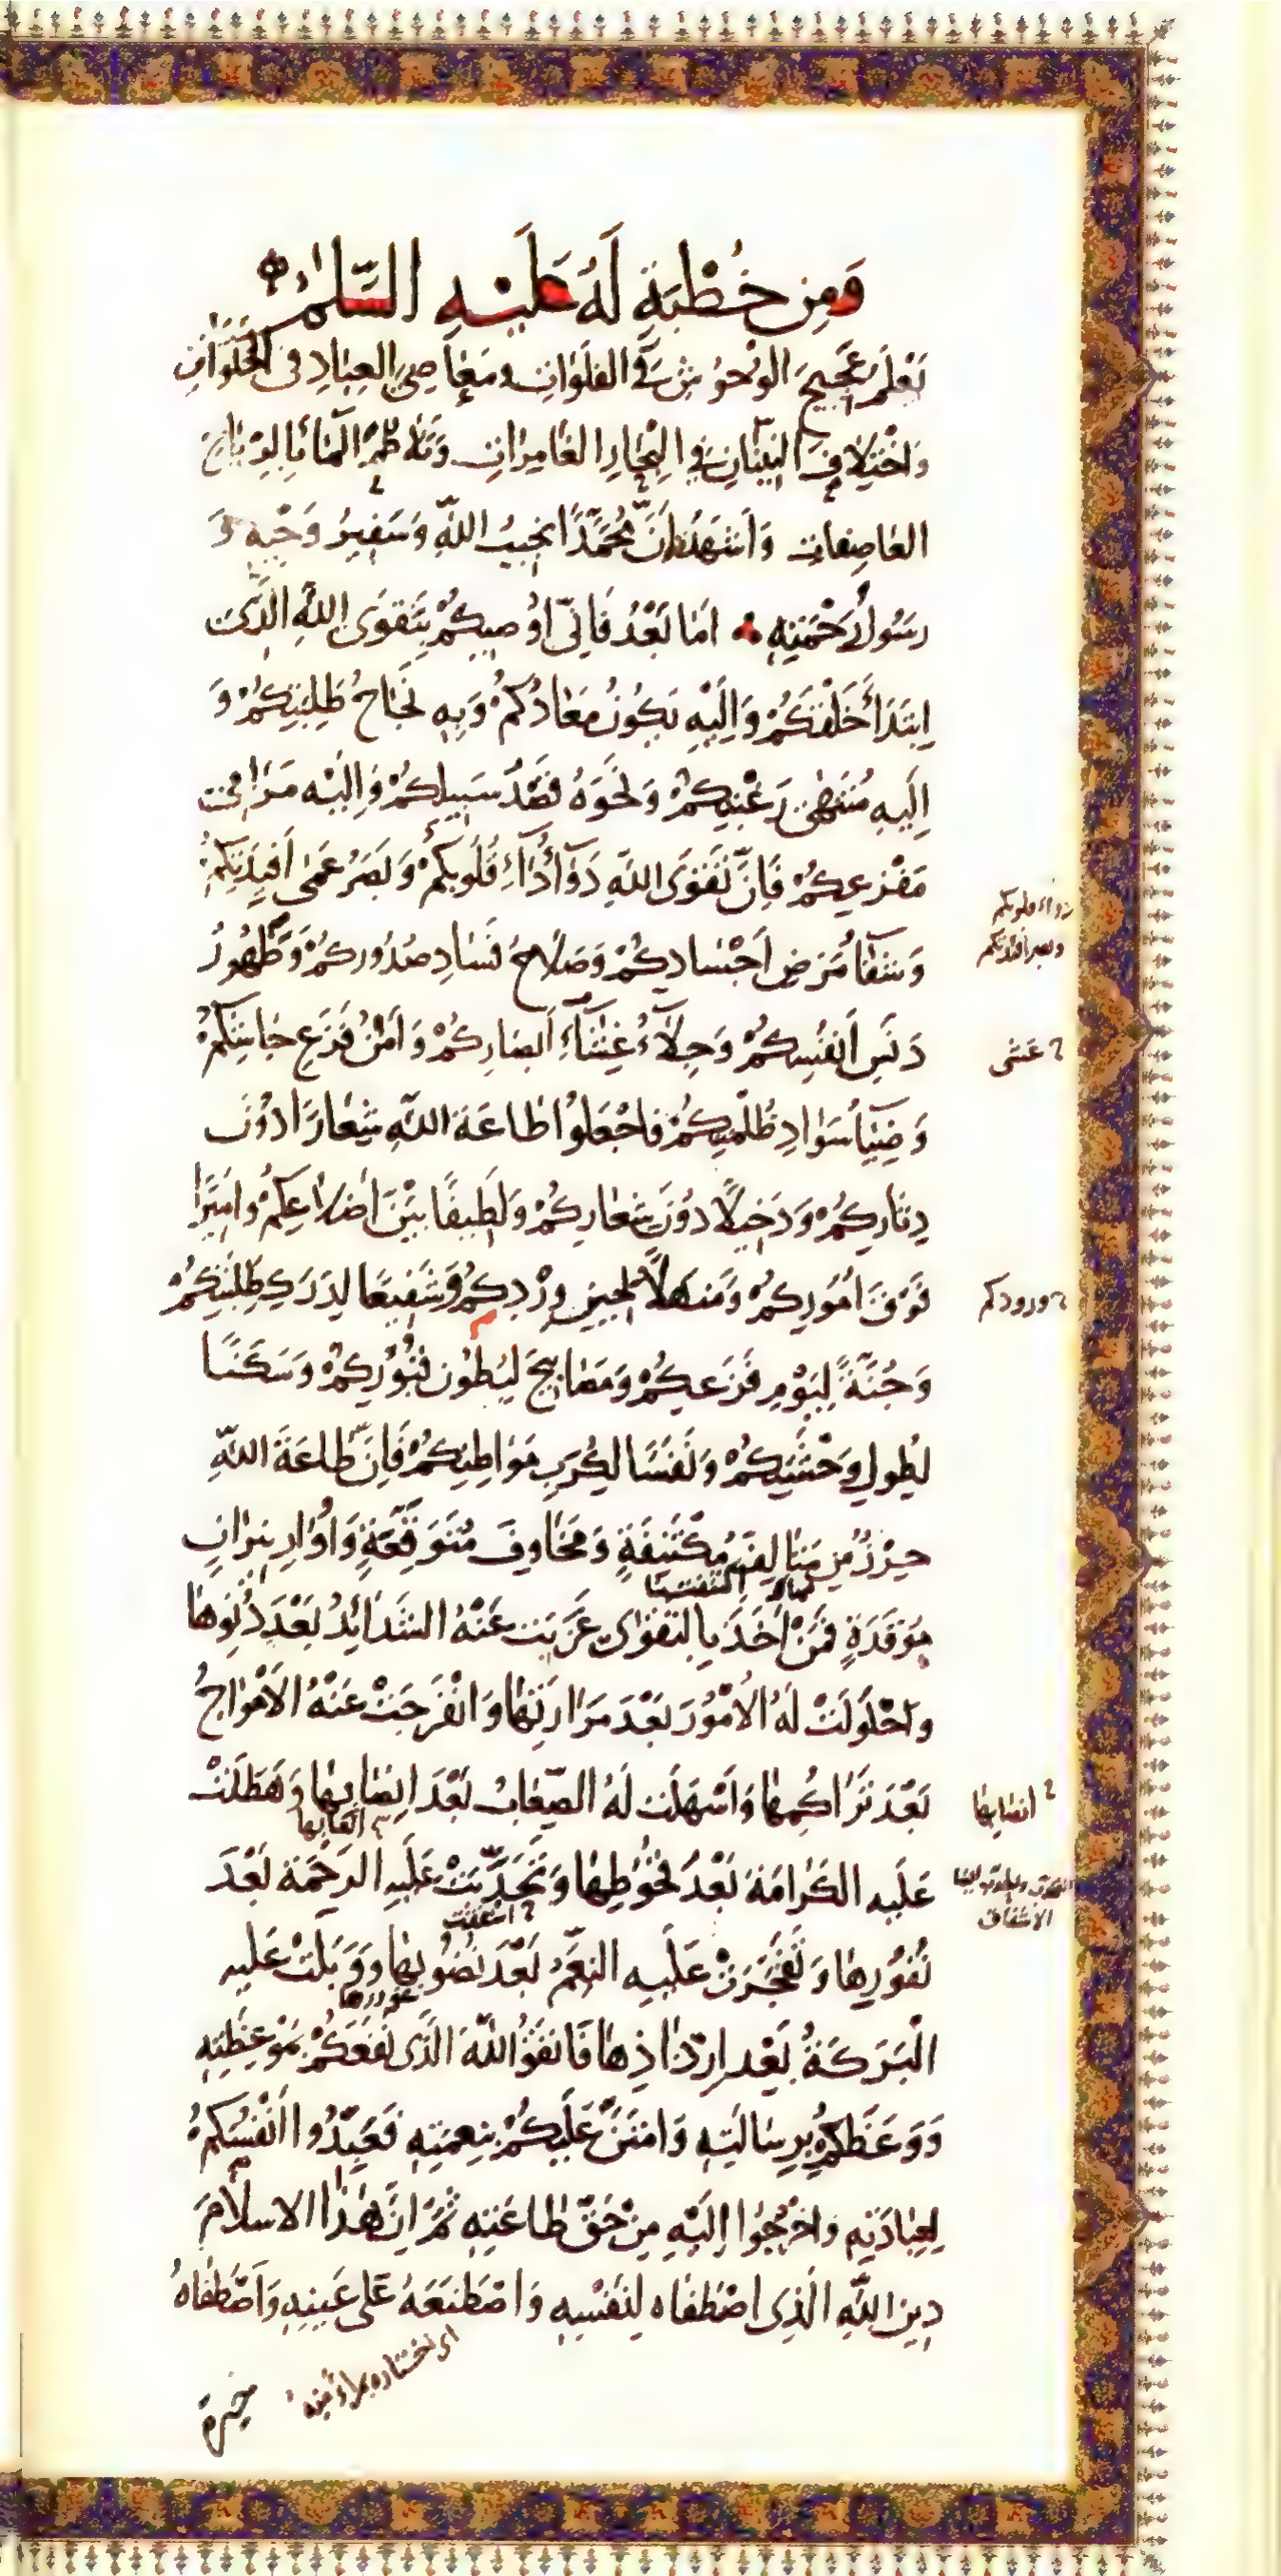 وَمِن خُطْبَةٍ لَهُ عَلَيْهِ السَّلٰمُ
يَعْلَمُ عَجِيجَ الوُحُوشِ فِي الفَلَوَاتِ وَمَعَاصِيَ العِبَادِ فِي الخَلَوَاتِ
وَاخْتِلَافَ النِّينَانِ فِي الْبِحَارِ الغَامِرَاتِ وَتَلَاطُمَ المَاءِ بِالرِّيَاحِ
العَاصِفَاتِ وَأَشْهَدُ أَنَّ مُحَمَّدًا نَجِيبُ اللهِ وَسَفِيرُ وَحْيِهِ وَ
رَسُولُ رَحْمَتِهِ أَمَّا بَعْدُ فَإِنِّي أُوصِيكُمْ بِتَقْوَى اللهِ الَّذِي
ابْتَدَأَ خَلْقَكُمْ وَإِلَيْهِ يَكُونُ مَعَادُكُمْ وَبِهِ نَجَاحُ طَلِبَتِكُمْ وَ
إِلَيْهِ مُنْتَهَى رَغْبَتِكُمْ وَنَحْوَهُ قَصْدُ سَبِيلِكُمْ وَإِلَيْهِ مَرَامِي
مَفْزَعِكُمْ فَإِنَّ تَقْوَى اللهِ دَوَاءُ دَاءِ قُلُوبِكُمْ وَبَصَرُ عَمَى أَفْئِدَتِكُمْ
دواء قلوبكم
وبصر افئدتكم
وَشِفَاءُ مَرَضِ أَجْسَادِكُمْ وَصَلَاحُ فَسَادِ صُدُورِكُمْ وَطَهُورُ
دَنَسِ أَنْفُسِكُمْ وَجِلَاءُ غِشَاءِ أَبْصَارِكُمْ وَأَمْنُ فَزَعِ جَاشِكُمْ
عَشَى
وَضِيَاءُ سَوَادِ ظُلْمَتِكُمْ فَاجْعَلُوا طَاعَةَ اللهِ شِعَارًا دُونَ
دِثَارِكُمْ وَدَخِيلًا دُونَ شِعَارِكُمْ وَلَطِيفًا بَيْنَ أَضْلَاعِكُمْ وَأَمِيرًا
فَوْقَ أُمُورِكُمْ وَمَنْهَلًا لِحِينِ وِرْدِكُمْ وَشَفِيعًا لِدَرَكِ طَلِبَتِكُمْ
ورودكم
وَجُنَّةً لِيَوْمِ فَزَعِكُمْ وَمَصَابِيحَ لِبُطُونِ قُبُورِكُمْ وَسَكَنًا
لِطُولِ وَحْشَتِكُمْ وَنَفَسًا لِكُرَبِ مَوَاطِنِكُمْ فَإِنَّ طَاعَةَ اللهِ
حِرْزٌ مِنْ مَتَالِفَ مُكْتَنِفَةٍ وَمَخَاوِفَ مُتَوَقَّعَةٍ وَأُوَارِ نِيرَانٍ
مُوقَدَةٍ فَمَنْ أَخَذَ بِالتَّقْوَى عَزَبَتْ عَنْهُ الشَّدَائِدُ بَعْدَ دُنُوِّهَا
وَاحْلَوْلَتْ لَهُ الأُمُورُ بَعْدَ مَرَارَتِهَا وَانْفَرَجَتْ عَنْهُ الأَمْوَاجُ
بَعْدَ تَرَاكُمِهَا وَأَسْهَلَتْ لَهُ الصِّعَابُ بَعْدَ انْصَابِهَا وَهَطَلَتْ
انصابها
عَلَيْهِ الكَرَامَةُ بَعْدَ قُحُوطِهَا وَتَحَدَّبَتْ عَلَيْهِ الرَّحْمَةُ بَعْدَ
نُفُورِهَا وَتَفَجَّرَتْ عَلَيْهِ النِّعَمُ بَعْدَ نُضُوبِهَا وَوَبَلَتْ عَلَيْهِ
الْبَرَكَةُ بَعْدَ إِرْذَاذِهَا فَاتَّقُوا اللهَ الَّذِي نَفَعَكُمْ بِمَوْعِظَتِهِ
وَوَعَظَكُمْ بِرِسَالَتِهِ وَامْتَنَّ عَلَيْكُمْ بِنِعْمَتِهِ فَعَبِّدُوا أَنْفُسَكُمْ
لِعِبَادَتِهِ وَاخْرُجُوا إِلَيْهِ مِنْ حَقِّ طَاعَتِهِ ثُمَّ إِنَّ هٰذَا الاسْلَامَ
دِينُ اللهِ الَّذِي اصْطَفَاهُ لِنَفْسِهِ وَاصْطَنَعَهُ عَلَى عَيْنِهِ وَاصْطَفَاهُ
خيرة